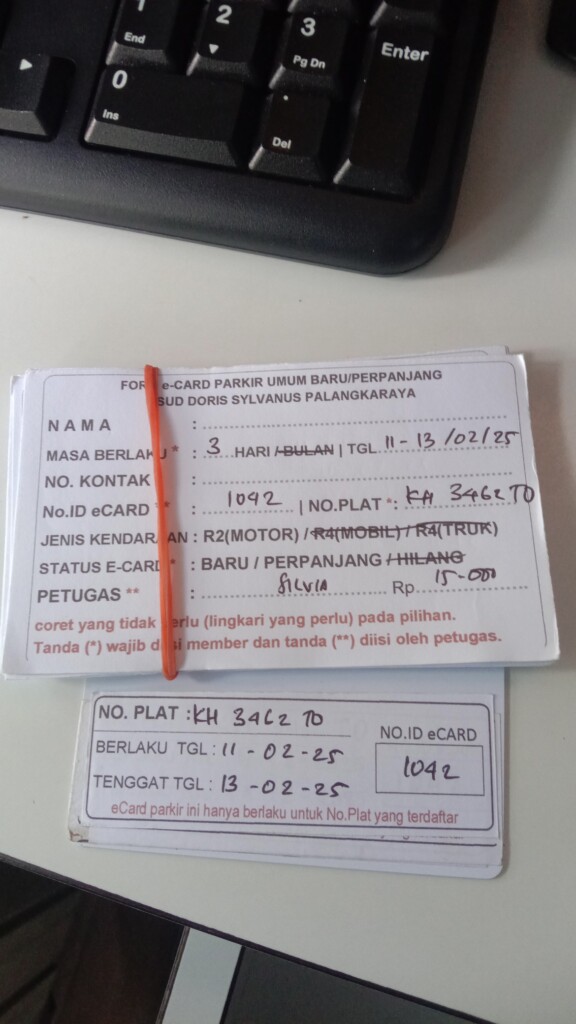 1
End
2
3
Pg Dn
Enter
0
Ins
.
Del
e-CARD PARKIR UMUM BARU/PERPANJANG
SUD DORIS SYLVANUS PALANGKARAYA
NAMA :
MASA BERLAKU * : 3 HARI /BULAN | TGL 11 - 13 /02/25
NO. KONTAK :
No.ID eCARD ** : 1042 | NO.PLAT *: KH 3462 TO
JENIS KENDARAAN : R2(MOTOR) / R4(MOBIL) / R4(TRUK)
STATUS E-CARD * : BARU / PERPANJANG / HILANG
PETUGAS ** : SILVIA Rp 15-000
coret yang tidak perlu (lingkari yang perlu) pada pilihan.
Tanda (*) wajib diisi member dan tanda (**) diisi oleh petugas.
NO. PLAT : KH 3462 TO
NO.ID eCARD
BERLAKU TGL : 11 - 02 - 25
1042
TENGGAT TGL : 13 - 02 - 25
eCard parkir ini hanya berlaku untuk No.Plat yang terdaftar